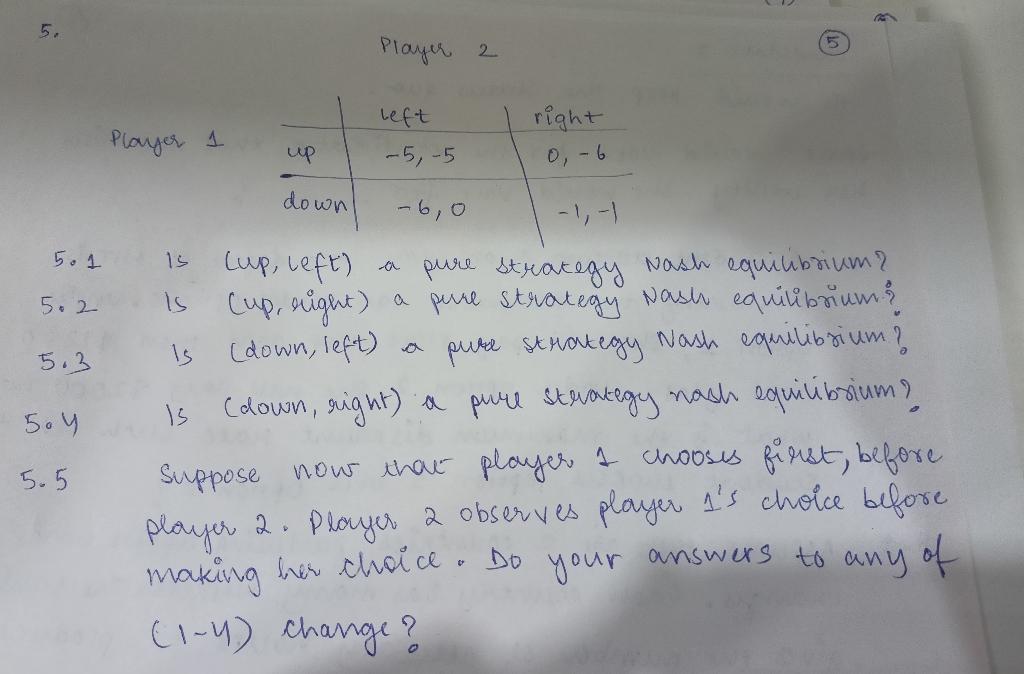 5.
5
Player 2
left right
Player 1
up -5, -5 0, -6
down -6, 0 -1, -1
5.1 Is (up, left) a pure strategy Nash equilibrium?
5.2 Is (up, right) a pure strategy Nash equilibrium?
5.3 Is (down, left) a pure strategy Nash equilibrium?
5.4 Is (down, right) a pure strategy nash equilibrium?
5.5 Suppose now that player 1 chooses first, before
player 2. Player 2 observes player 1's choice before
making her choice. Do your answers to any of
(1-4) change?